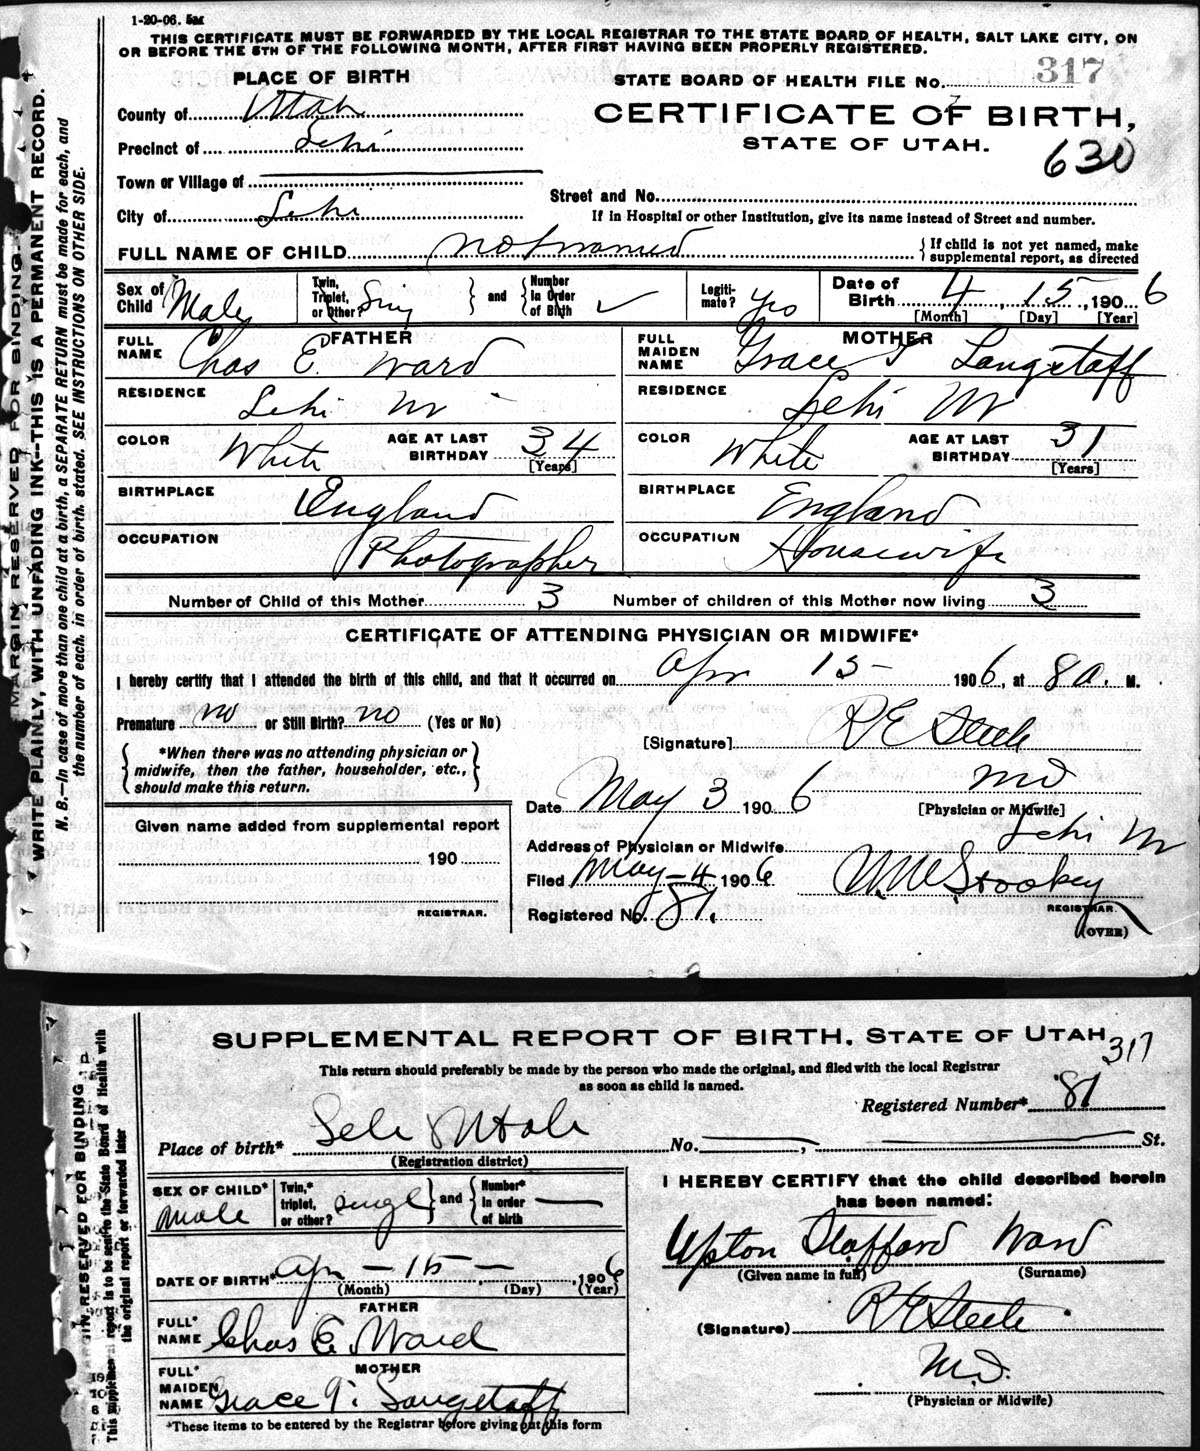 1-20-06. 5M
THIS CERTIFICATE MUST BE FORWARDED BY THE LOCAL REGISTRAR TO THE STATE BOARD OF HEALTH, SALT LAKE CITY, ON
OR BEFORE THE 5TH OF THE FOLLOWING MONTH, AFTER FIRST HAVING BEEN PROPERLY REGISTERED.
PLACE OF BIRTH
STATE BOARD OF HEALTH FILE No. 317
County of Utah
CERTIFICATE OF BIRTH,
Precinct of Lehi
STATE OF UTAH.
630
Town or Village of
Street and No.
City of Lehi
If in Hospital or other Institution, give its name instead of Street and number.
FULL NAME OF CHILD not named
If child is not yet named, make
supplemental report, as directed
Sex of Child Male
Twin, Triplet, or Other? Sing and Number in Order of Birth ✓
Legiti-mate? Yes
Date of Birth 4, 15, 1906
[Month] [Day] [Year]
FATHER
FULL NAME Chas E. Ward
RESIDENCE Lehi
COLOR White AGE AT LAST BIRTHDAY 34
[Years]
BIRTHPLACE England
OCCUPATION Photographer
MOTHER
FULL MAIDEN NAME Grace T Langstaff
RESIDENCE Lehi
COLOR White AGE AT LAST BIRTHDAY 31
[Years]
BIRTHPLACE England
OCCUPATION Housewife
Number of Child of this Mother 3 Number of children of this Mother now living 3
CERTIFICATE OF ATTENDING PHYSICIAN OR MIDWIFE*
I hereby certify that I attended the birth of this child, and that it occurred on Apr 15 1906, at 8 a. M.
Premature no or Still Birth? no (Yes or No)
[Signature] R E Steele
*When there was no attending physician or
midwife, then the father, householder, etc.,
should make this return.
MD
Date May 3 1906 [Physician or Midwife]
Given name added from supplemental report
190
REGISTRAR.
Address of Physician or Midwife Lehi
Filed May-4 1906 Stookey
Registered No. 81.
REGISTRAR.
(OVER)
MARGIN RESERVED FOR BINDING.
WRITE PLAINLY, WITH UNFADING INK—THIS IS A PERMANENT RECORD.
N. B.—In case of more than one child at a birth, a SEPARATE RETURN must be made for each, and
the number of each, in order of birth, stated. SEE INSTRUCTIONS ON OTHER SIDE.
SUPPLEMENTAL REPORT OF BIRTH, STATE OF UTAH
317
This return should preferably be made by the person who made the original, and filed with the local Registrar
as soon as child is named.
Registered Number* 81
Place of birth* Utah No. , St.
(Registration district)
SEX OF CHILD* Male
Twin,* triplet, or other? single and Number* in order of birth
DATE OF BIRTH* Apr - 15 - , 1906
(Month) (Day) (Year)
FATHER
FULL* NAME Chas E. Ward
MOTHER
FULL* MAIDEN NAME Grace T. Langstaff
*These items to be entered by the Registrar before giving out this form
I HEREBY CERTIFY that the child described herein
has been named:
Upton Stafford Ward
(Given name in full) (Surname)
(Signature) R E Steele
M.D.
(Physician or Midwife)
MARGIN RESERVED FOR BINDING
This supplemental report is to be sent to the State Board of Health with
the original report or forwarded later